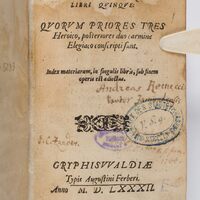 LIBRI QUINQUE:
QVORVM PRIORES TRES
Heroico, posteriores duo carmine
Elegiaco conscripti sunt.
Index materiarum, in singulis libris, sub finem
operis est adiectus.
Andreas
GRYPHISVVALDIÆ
Typis Augustini Ferberi.
Anno M. D. LXXXII.